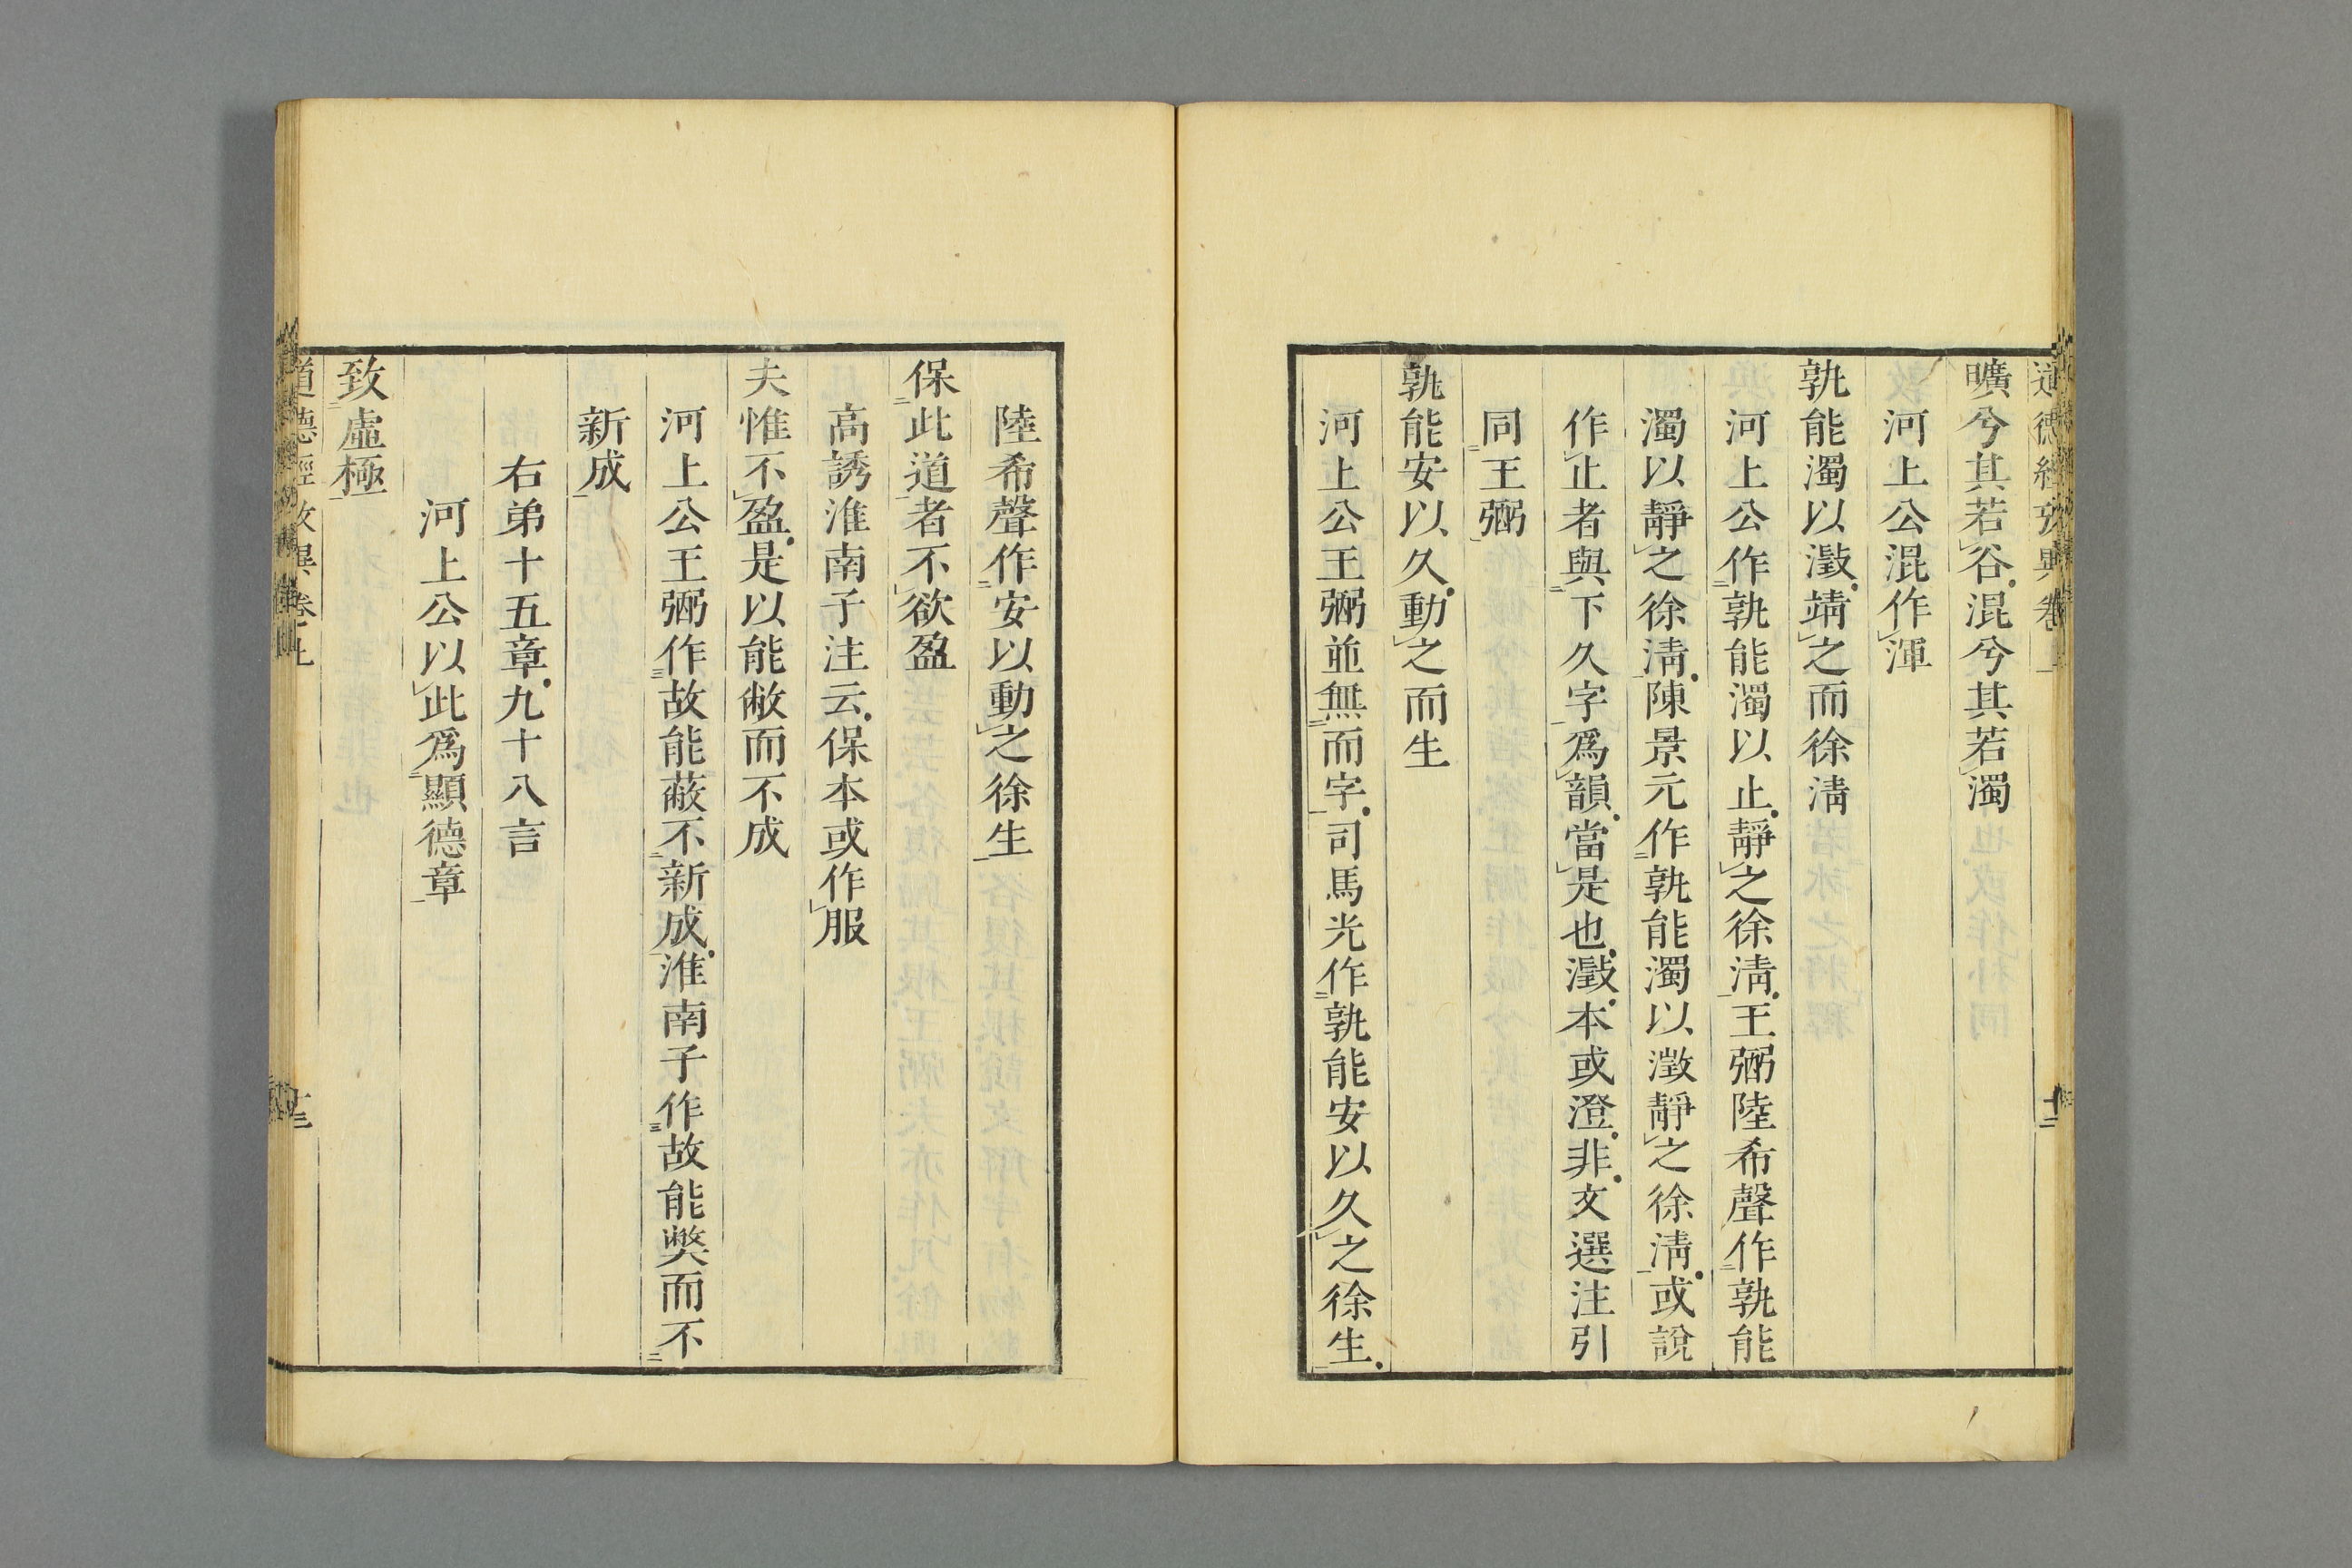 道德經攷異卷上 十二
曠兮其若谷混兮其若濁
河上公混作渾
孰能濁以澂靖之而徐淸
河上公作孰能濁以止靜之徐淸王弼陸希聲作孰能
濁以靜之徐淸陳景元作孰能濁以澂靜之徐淸或說
作止者與下久字爲韻當是也澂本或澄非文選注引
同王弼
孰能安以久動之而生
河上公王弼並無而字司馬光作孰能安以久之徐生
陸希聲作安以動之徐生
保此道者不欲盈
高誘淮南子注云保本或作服
夫惟不盈是以能敝而不成
河上公王弼作故能蔽不新成淮南子作故能弊而不
新成
右弟十五章九十八言
河上公以此爲顯德章
致虛極
道德經攷異卷上 十三